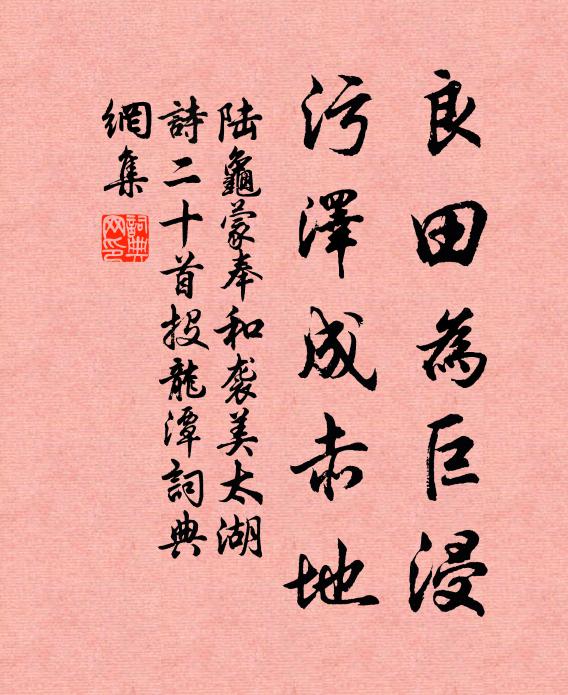 良田為巨浸
污澤成赤地
陆龜蒙奉和袭美太湖
詩二十首投龍潭詞典
網集
詞典網印